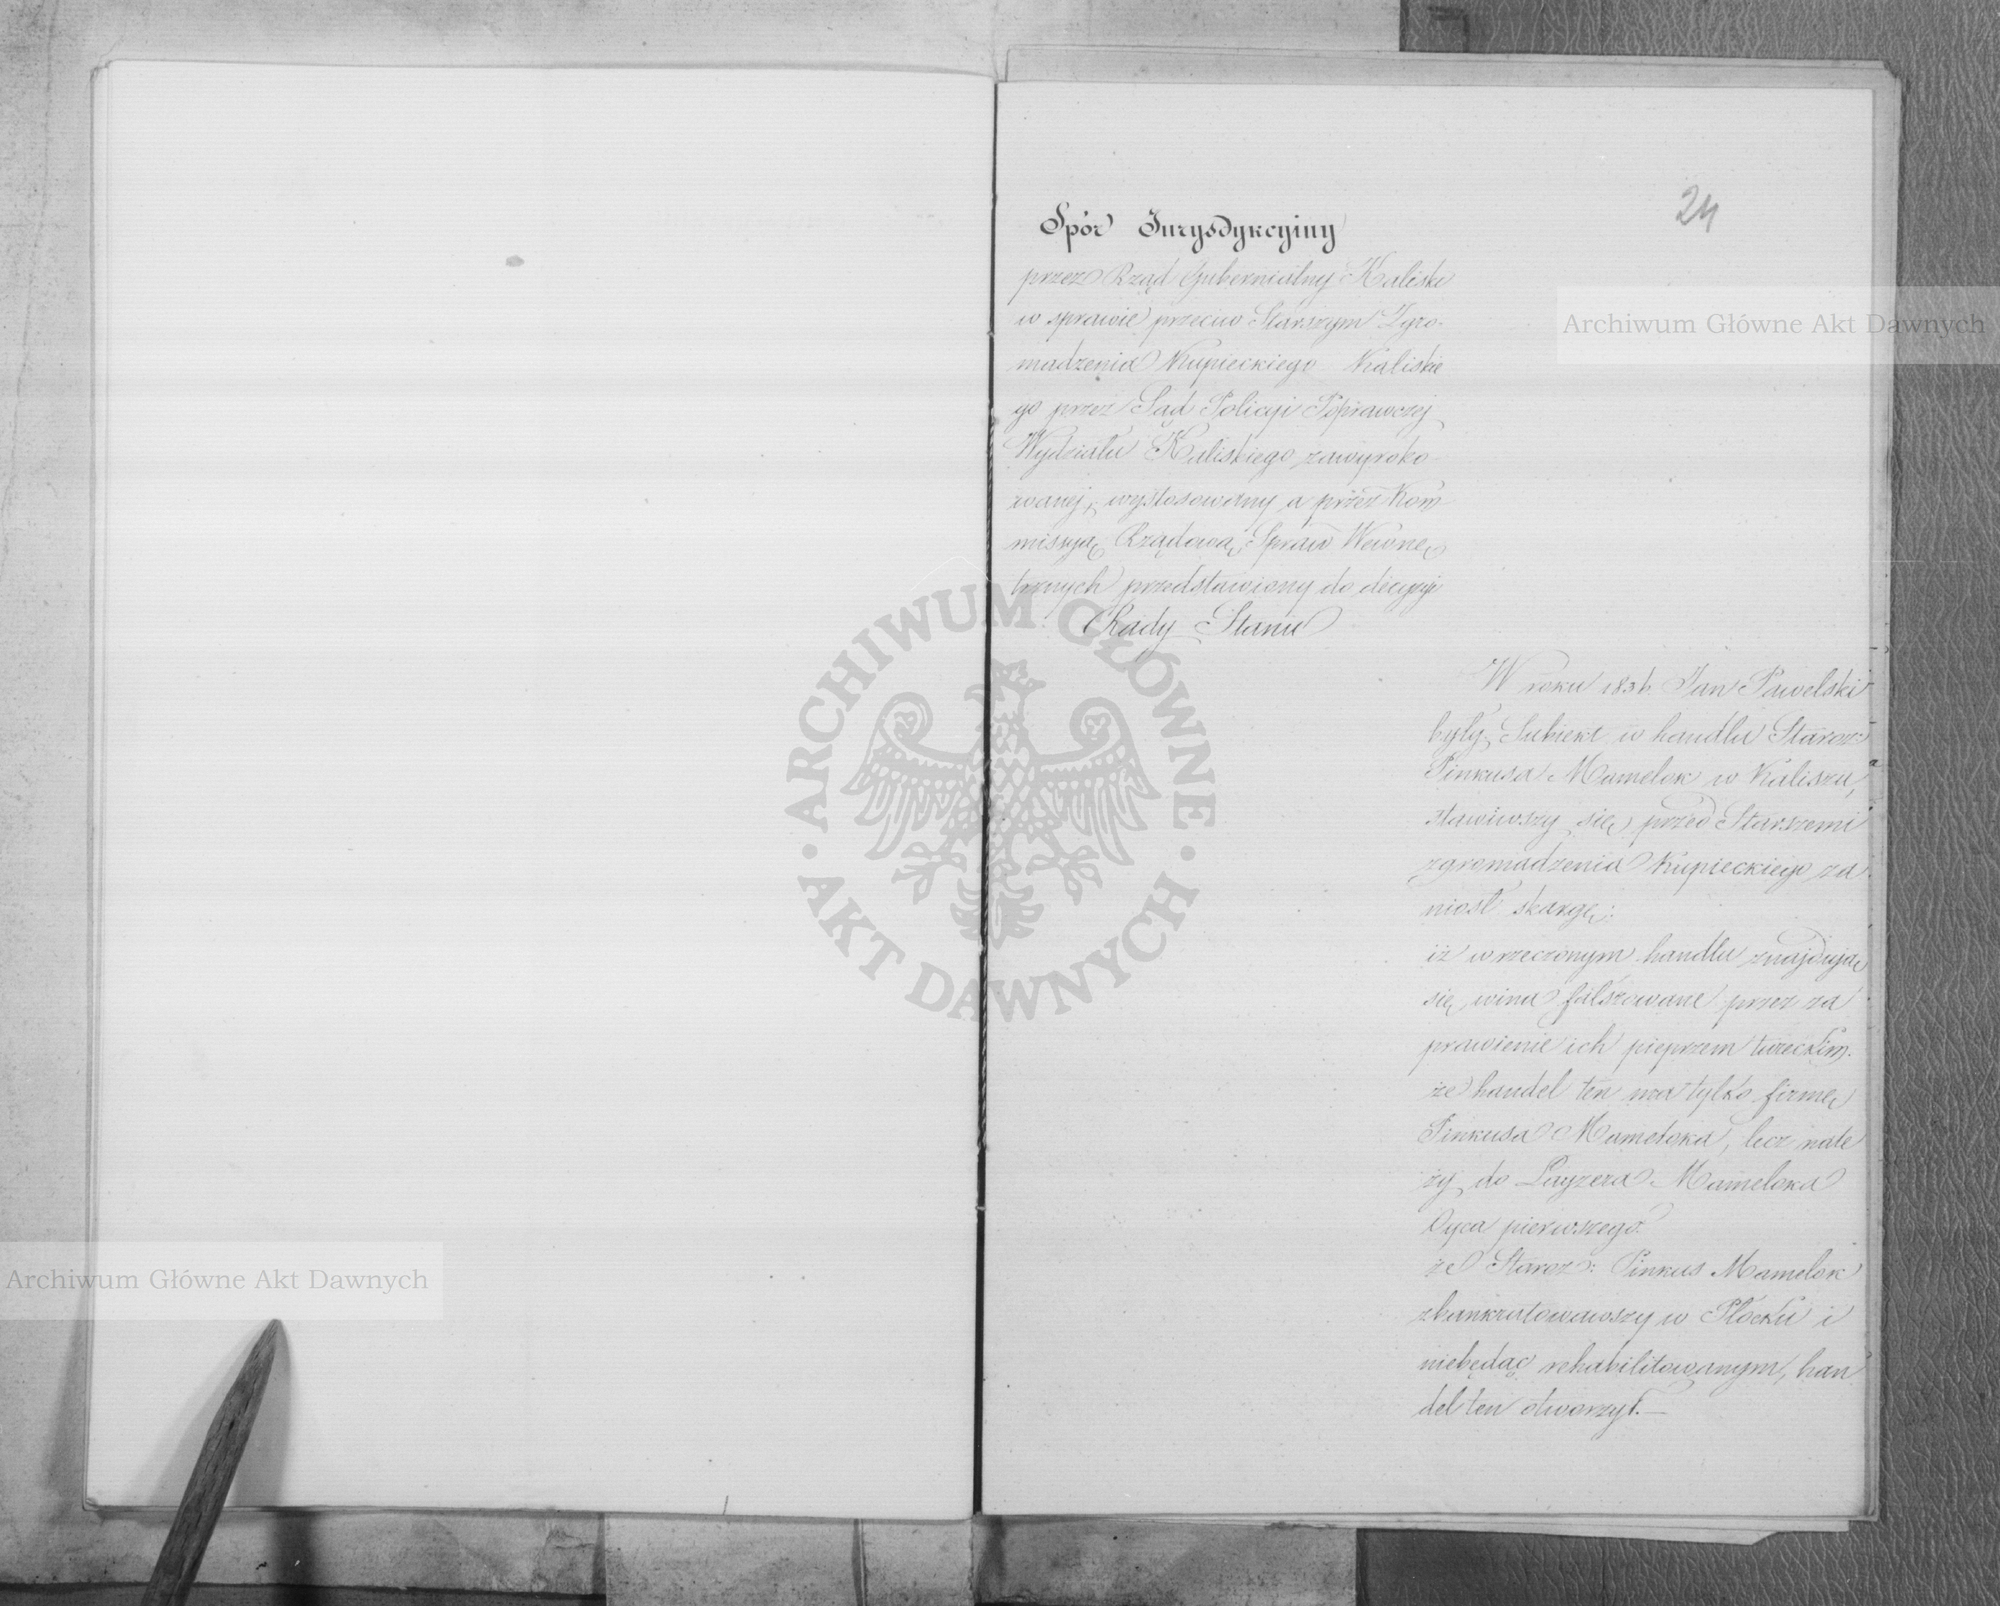 24
Spór Jurysdykcyiny
przez Rząd Gubernialny Kaliski
w sprawie przeciw Starszym Zgro-
madzenia Kupieckiego Kaliskie
go przez Sąd Policyi Poprawczej
Wydziału Kaliskiego zawyroko-
wanej, wystosowany a przez Kom
missyją Rządową Spraw Wewnę
trznych przedstawiony do decyzyi
Rady Stanu
W roku 1836 Jan Pawelski
były Subiekt w handlu Staroz:
Pinkusa Mamelok w Kaliszu,
stawiwszy się przed Starszemi
zgromadzenia Kupieckiego za
niosł skargę:
iż w rzeczonym handlu znajdują
się wina fałszowane przez za
prawienie ich pieprzem tureckim.
że handel ten ma tylko firmę
Pinkusa Mameloka, lecz nale
ży do Layzera Mameloka
Oyca pierwszego.
że Staroz: Pinkus Mamelok
zbankrutowawszy w Płocku i
niebędąc rehabilitowanym, han
del ten otworzył.—
Archiwum Główne Akt Dawnych
Archiwum Główne Akt Dawnych
ARCHIWUM GŁÓWNE · AKT DAWNYCH ·